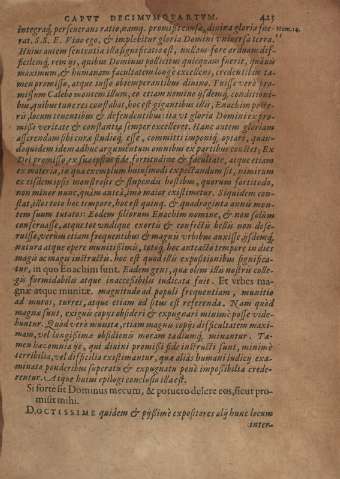 CAPVT DECIMVMQVARTVM. 423
integraq́; perseuerans ratio, namq. promissi causa, diuina gloria fue
rat. S.S.E. Viuo ego, & implebitur gloria Domini vniuersa terra. Num.14.
Huius autem sententia illa significatio est, nullam fore arduam dif-
ficilemq́; rem ijs, quibus Dominus pollicitus quicquam fuerit, quàuis
maximum, & humanam facultatem longè excellens, credentibus ta-
men promisse, atque iussis obtemperantibus diuino. Fuisse verò pro-
missum Calebo montem illum, ex etiam nomine ijsdemq́; conditioni-
bus, quibus tunc res constabat, hoc est gigantibus illis, Enachim posse-
ris, locum tenentibus & defendentibus: ita vt gloria Domini ex pro-
missi veritate & constantia semper excelleret. Hanc autem gloriam
asserendam sibi curae studioq́; esse, committi imponiq́; optare, quan-
doquidem idem adhuc argumentum omnibus ex partibus constet; Ex
Dei promisso, ex sua ipsius fide, fortitudine & facultate, atque etiam
ex materia, in qua exemplum huiusmodi expectandum sit, nimirum
ex eisdem ipsis monstrosis & stupendis hostibus, quorum fortitudo,
non minor nunc, quàm antea, imo maior existimetur. Siquidem con-
stat, illos toto hoc tempore, hoc est quinq́; & quadraginta annis mon-
tem suum tutatos: Eodem filiorum Enachim nomine, & non solùm
conseruasse, atque tot vndique exortis & confectis bellis non dese-
ruisse, verùm etiam frequentibus & magnis vrbibus auxisse, ijsdemq́;
natura atque opere munitissimis, totoq́; hoc anteacto tempore in dies
magis ac magis instructis: hoc est quod illis expositionibus significa-
tur, in quo Enachim sunt. Eadem gens, quae olim illis nostris colle-
gis formidabilis atque inaccessibilis indicata fuit. Et vrbes ma-
gnae atque munitae. magnitudo ad populi frequentiam, munitio
ad muros, turres, atque etiam ad situs est referenda. Nam quòd
magna sunt, exiguis copijs obsideri & expugnari minimè posse vide-
buntur. Quòd verò munita, etiam magnis copijs difficultatem maxi-
mam, vel longissimae obsidionis moram taediumq́; minantur. Ta-
men haec omnia ijs, qui diuini promissi fide instructi sunt, minimè
terribilia, vel difficilia existimantur, quae aliàs humani iudicij exa-
minata ponderibus superatu & expugnatu penè impossibilia crede-
rentur. Atque huius epilogi conclusio illa est.
Si forte sit Dominus mecum, & potuero delere eos, sicut pro-
misit mihi.
DOCTISSIME quidem & pijssimè expositores alij hunc locum
inter-